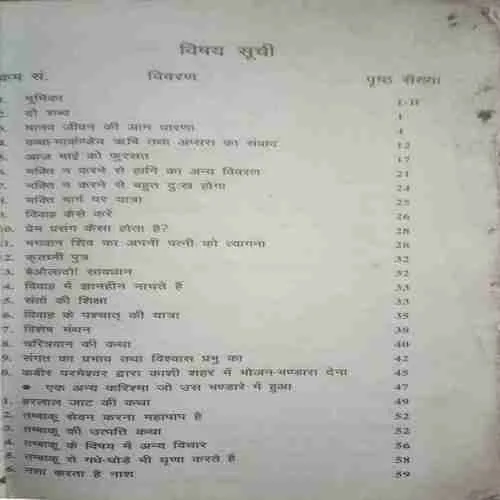 विषय सूची
क्रम सं. विवरण पृष्ठ संख्या
1. भूमिका I-II
2. दो शब्द 1
3. मानव जीवन की आम धारणा 4
4. कथा-मार्कण्डेय ऋषि तथा अप्सरा का संवाद 12
5. आज भाई को फुरसत 17
6. भक्ति न करने से हानि का अन्य विवरण 21
7. भक्ति न करने से बहुत दुःख होगा 24
8. भक्ति मार्ग पर यात्रा 25
9. विवाह कैसे करें 26
10. प्रेम प्रसंग कैसा होता है? 28
1. भगवान शिव का अपनी पत्नी को त्यागना 28
2. कृतघ्नी पुत्र 32
3. बेऔलादो! सावधान 32
4. विवाह में ज्ञानहीन नाचते हैं 33
5. संतों की शिक्षा 33
6. विवाह के पश्चात् की यात्रा 35
7. विशेष मंथन 39
8. चरित्रवान की कथा 40
9. संगत का प्रभाव तथा विश्वास प्रभु का 42
0. कबीर परमेश्वर द्वारा काशी शहर में भोजन-भण्डारा देना 45
● एक अन्य करिश्मा जो उस भण्डारे में हुआ 47
1. हरलाल जाट की कथा 49
2. तम्बाकू सेवन करना महापाप है 52
3. तम्बाकू की उत्पत्ति कथा 52
4. तम्बाकू के विषय में अन्य विचार 56
5. तम्बाकू से गधे-घोड़े भी घृणा करते हैं 58
6. नशा करता है नाश 59